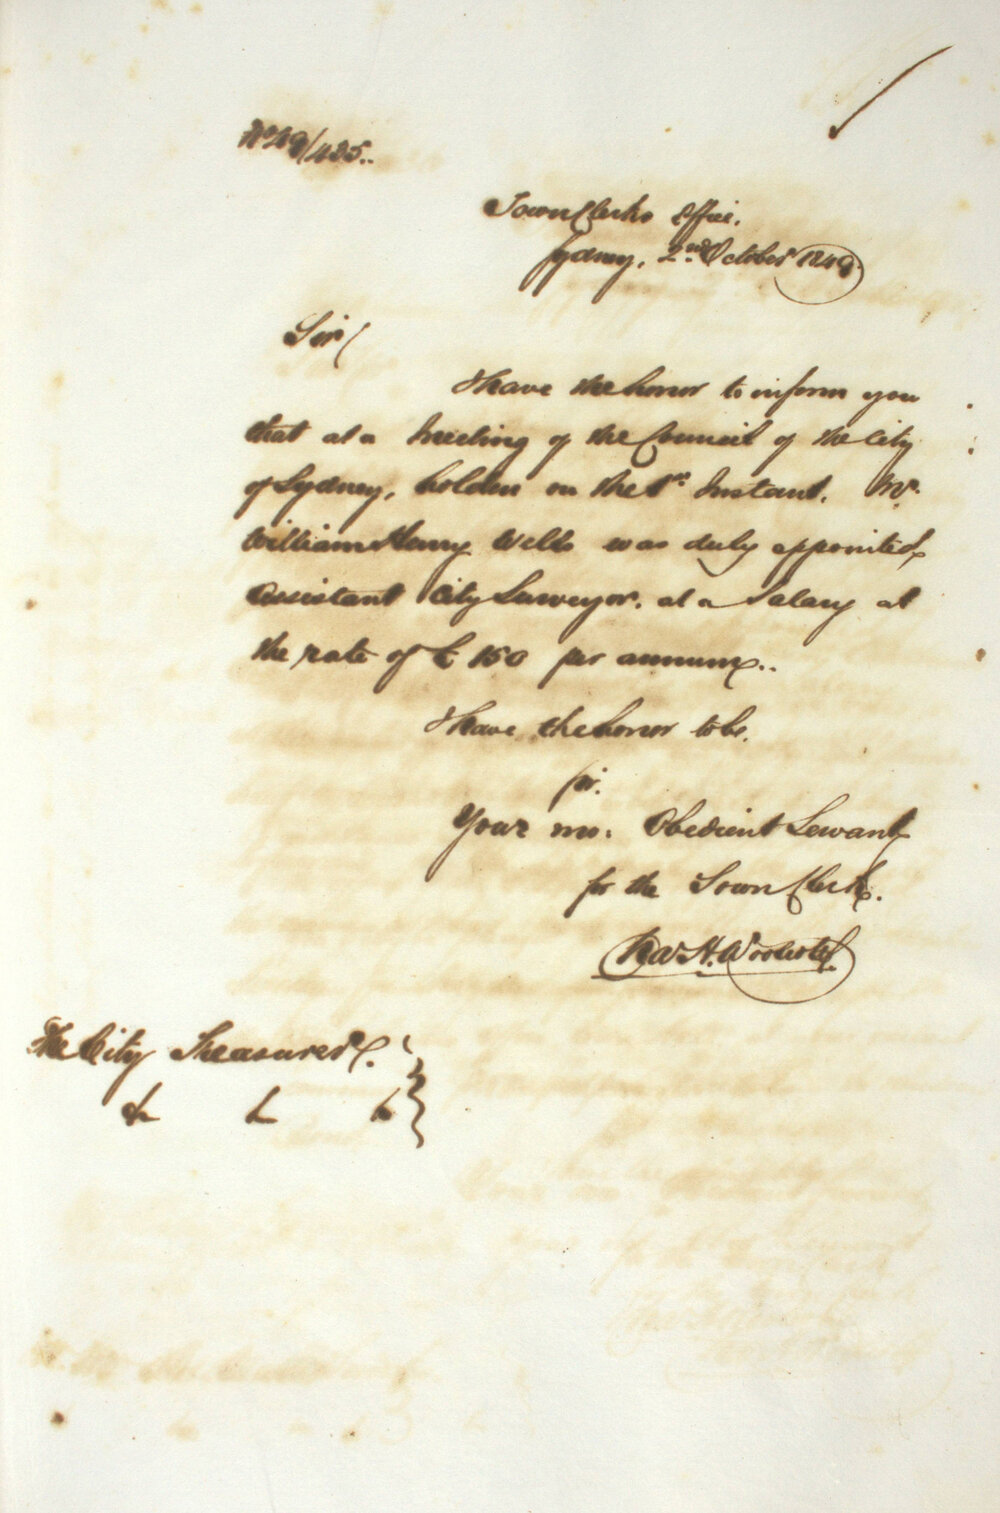 No 49/435..
Town Clerks Office.
Sydney, 2nd October 1849.
Sir
I have the honor to inform you
that at a Meeting of the Council of the City
of Sydney, holden on the 1st Instant, Mr.
William Henry Wells was duly appointed
Assistant City Surveyor, at a Salary at
the rate of £ 150 per annum..
I have the honor to be,
Sir.
Your mo: Obedient Servant
for the Town Clerk.
The City Treasurer.
&c &c &c